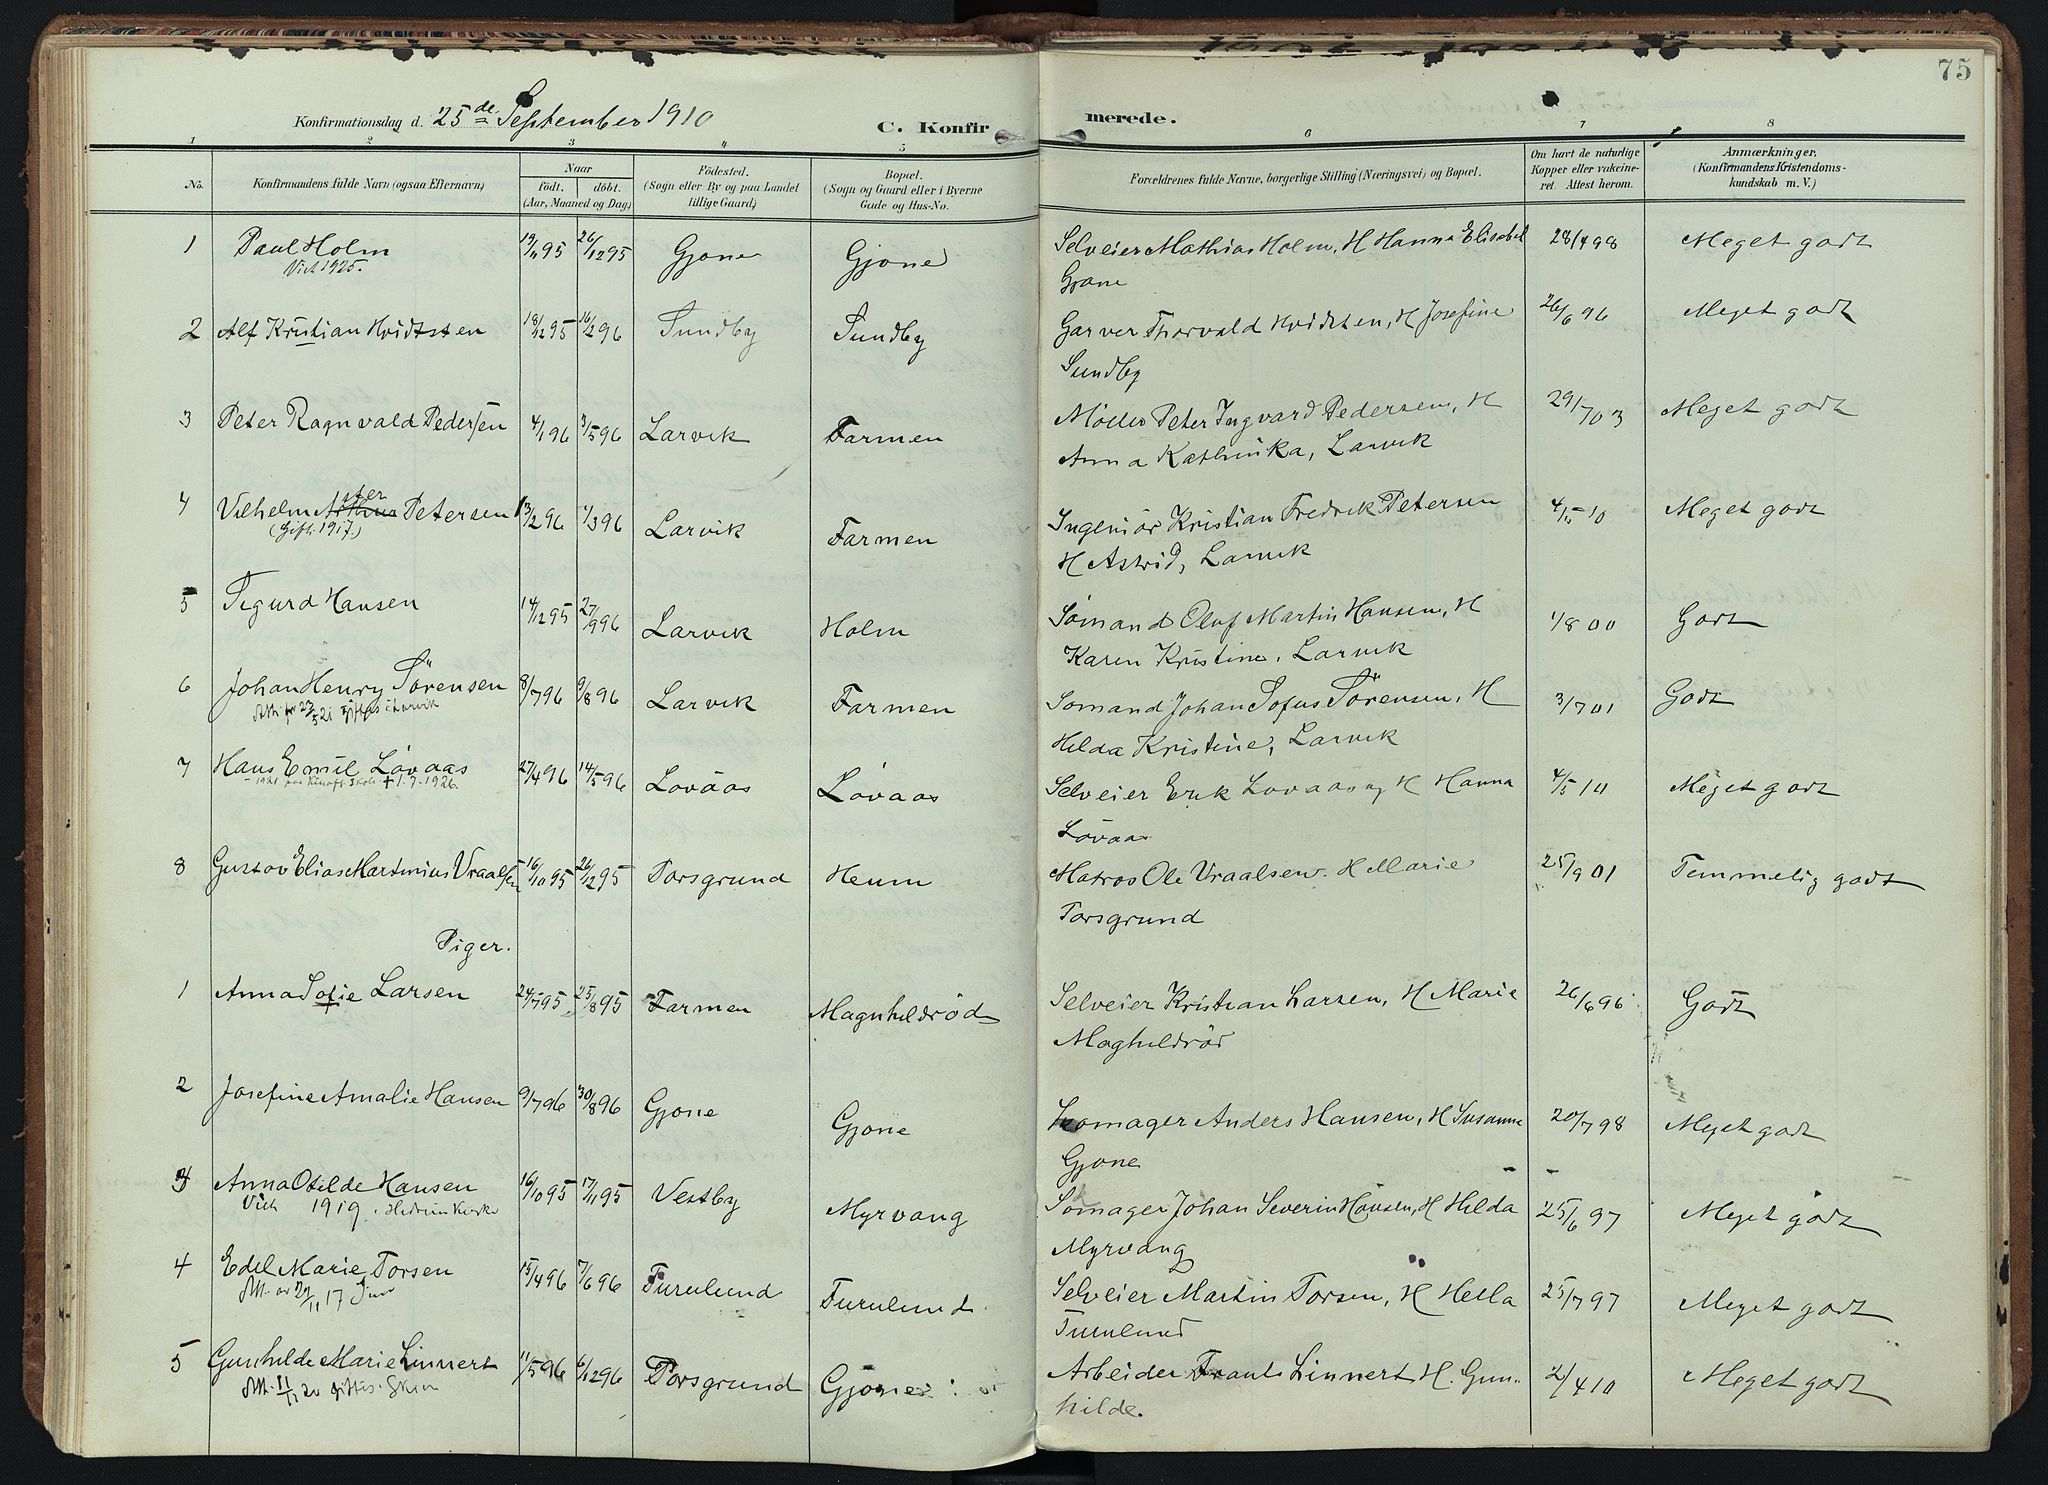 75
Konfirmationsdag d. 25de September 1910 C. Konfirmerede.
1 2 3 4 5 6 7 8
No. Konfirmandens fulde Navn (ogsaa Efternavn) Naar födt. döbt. (Aar, Maaned og Dag) Födested. (Sogn eller By og paa Landet tillige Gaard) Bopæl. (Sogn og Gaard eller i Byerne Gade og Hus-No. Forældrenes fulde Navne, borgerlige Stilling (Næringsvei) og Bopæl. Om havt de naturlige Kopper eller vakcineret. Attest herom. Anmærkninger. (Konfirmandens Kristendomskundskab m. V.)
1 Paul Holm 19/11 95 26/12 95 Gjone Gjone Selveier Mathias Holm, H Hanna Elisabet 28/4 98 Meget godt
Viet 1925. Gjone
2 Alf Kristian Hvidtsten 18/12 95 16/2 96 Sundby Sundby Garver Thorvald Hvidtsten, H Josefine 26/6 96 Meget godt
Sundby
3 Peter Ragnvald Pedersen 4/1 96 3/5 96 Larvik Farmen Møller Peter Ingvard Pedersen, H 29/7 03 Meget godt
Anna Kathinka, Larvik
4 Vilhelm Petersen 13/2 96 1/3 96 Larvik Farmen Ingeniör Kristian Fredrik Petersen 4/5 10 Meget godt
(Gift 1917.) H Astrid, Larvik
5 Sigurd Hansen 14/12 95 27/9 96 Larvik Holm Sømand Oluf Martin Hansen, H 1/8 00 Godt
Karen Kristine, Larvik
6 Johan Henry Sörensen 8/7 96 9/8 96 Larvik Farmen Sømand Johan Sofus Sörensen, H 3/7 01 Godt
Att. 23/5 21 giftes i Larvik Hilda Kristine, Larvik
7 Hans Emil Lövaas 27/4 96 14/5 96 Lövaas Lövaas Selveier Erik Lövaas og H Hanna 4/5 10 Meget godt
+ 1.7.1926. Lövaas
8 Gustav Elias Martinius Vraalsen 16/10 95 26/12 95 Porsgrund Heum Matros Ole Vraalsen. H Marie 25/9 01 Temmelig godt
Porsgrund
Piger.
1 Anna Sofie Larsen 24/7 95 25/8 95 Farmen Magnhildröd Selveier Kristian Larsen, H Marie 26/6 96 Godt
Maghildröd
2 Josefine Amalie Hansen 9/7 96 30/8 96 Gjone Gjone Skomager Anders Hansen, H Susanne 20/7 98 Meget godt
Gjone
3 Anna Otilde Hansen 16/10 95 17/11 95 Vestby Myrvang Skomager Johan Severin Hansen, H Hilda 25/6 97 Meget godt
Viet 1919 i Hedrum Kirke Myrvang
4 Edel Marie Torsen 15/4 96 7/6 96 Furulund Furulund Selveier Martin Torsen, H Hella 25/7 97 Meget godt
Att. 17 Furulund
5 Gunhilde Marie Linnert 11/5 96 6/12 96 Porsgrund Gjone Arbeider Frants Linnert H. Gun- 2/4 10 Meget godt
Att. 11/11 20 giftes i Skien hilde.